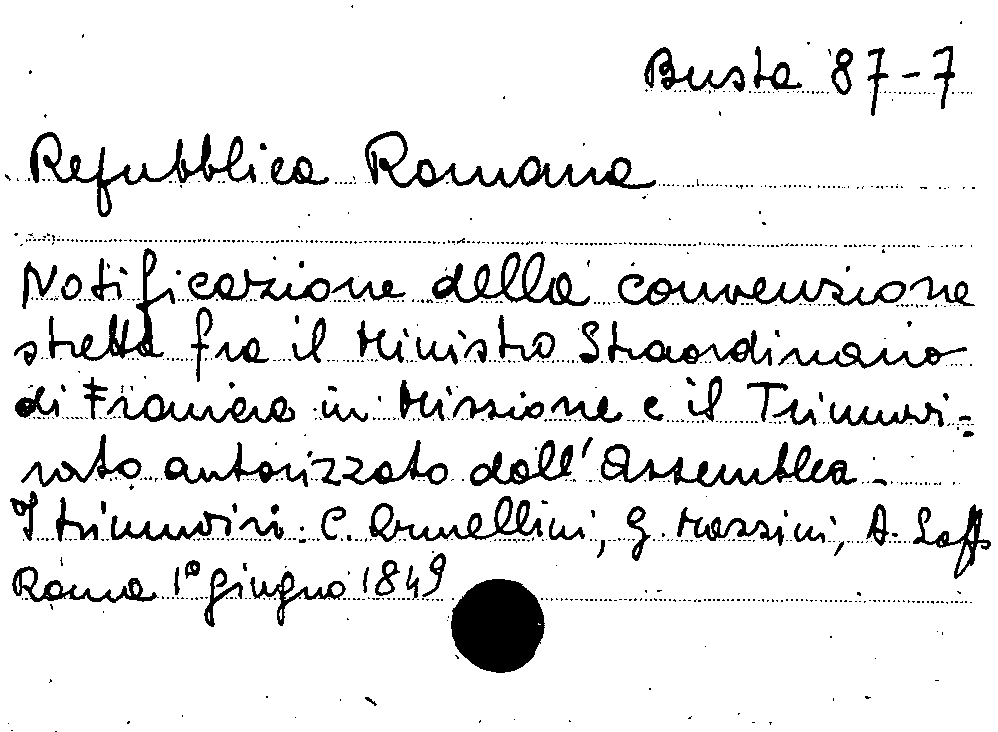 Busta 87-7
Repubblica Romana
Notificazione della convenzione
stretta fra il Ministro Straordinario
di Francia in Missione e il Triumvi-
rato autorizzato dall'Assemblea.
I triumviri: C. Armellini, G. Mazzini, A. Saffi
Roma 1° giugno 1849